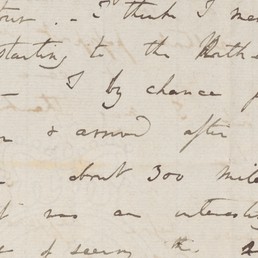 . - I think I
starting to the North
- I by chance
& arrived after
about 300 mile
was an interesting
of seeing the